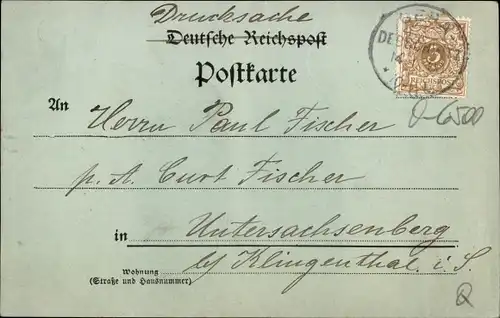 Drucksache
Deutsche Reichspost
Postkarte
An Herrn Paul Fischer
p. A. Curt Fischer
in Untersachsenberg
Wohnung
(Straße und Hausnummer)
b/ Klingenthal i. S.
REICHSPOST
0-6500
Q